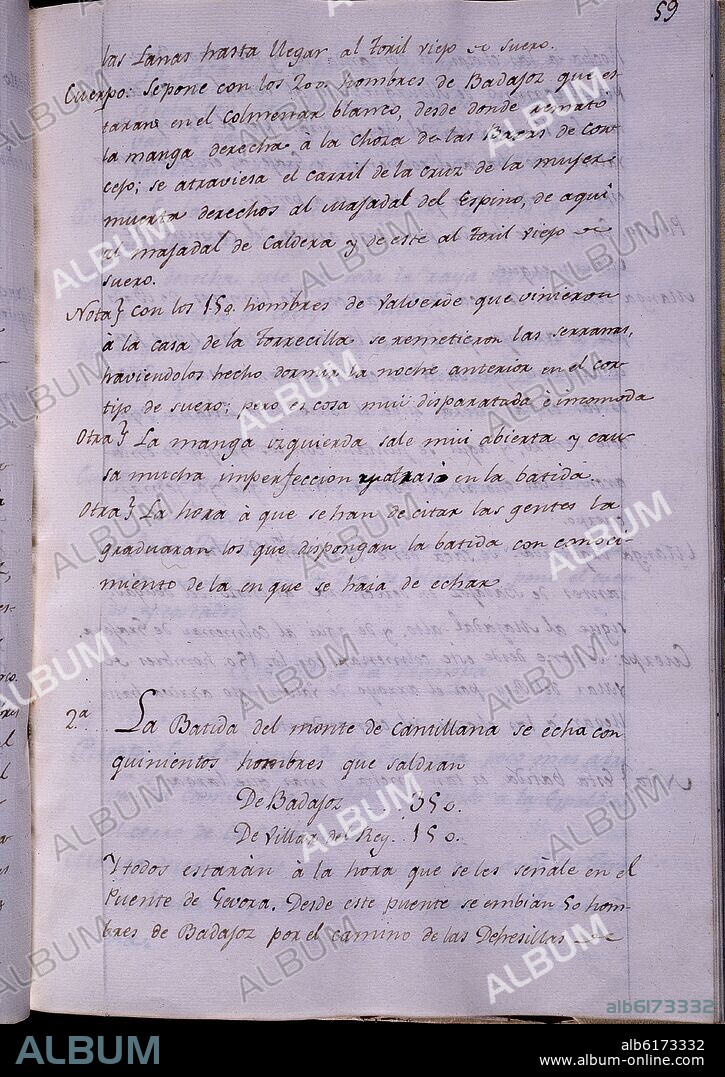 59
las Lanas hasta llegar al Toril viejo de Suero.
Cuerpo: Se pone con los 200 hombres de Badajoz que es-
taran en el Colmenar blanco, desde donde remató
la manga derecha à la Choza de las de Con-
cejo; se atraviesa el carril de la Cruz de la mujer
muerta derechos al Majadal del Espino, de aqui
al majadal de Caldera y de este al Toril viejo de
Suero.
Nota} Con los 150 hombres de Valverde que vinieron
à la casa de la Torrecilla se remetieron las serranas,
haviendolos hecho dormir la noche anterior en el cor-
tijo de Suero; pero es cosa mui disparatada è incomoda
Otra} La manga izquierda sale mui abierta y cau-
sa mucha imperfeccion y atraso en la batida.
Otra} La hora à que se han de citar las gentes la
graduaran los que dispongan la batida con conoci-
miento de la en que se haia de echar
2.a La Batida del monte de Cantillana se echa con
quinientos hombres que saldran
De Badajoz 350.
De Villar del Rey. 150.
Y todos estarán à la hora que se les señale en el
Puente de Gevora. Desde este puente se embian 50 hom-
bres de Badajoz por el camino de las Dehesillas de
ALBUM
alb6173332
ALBUM
alb6173332
www.album-online.com